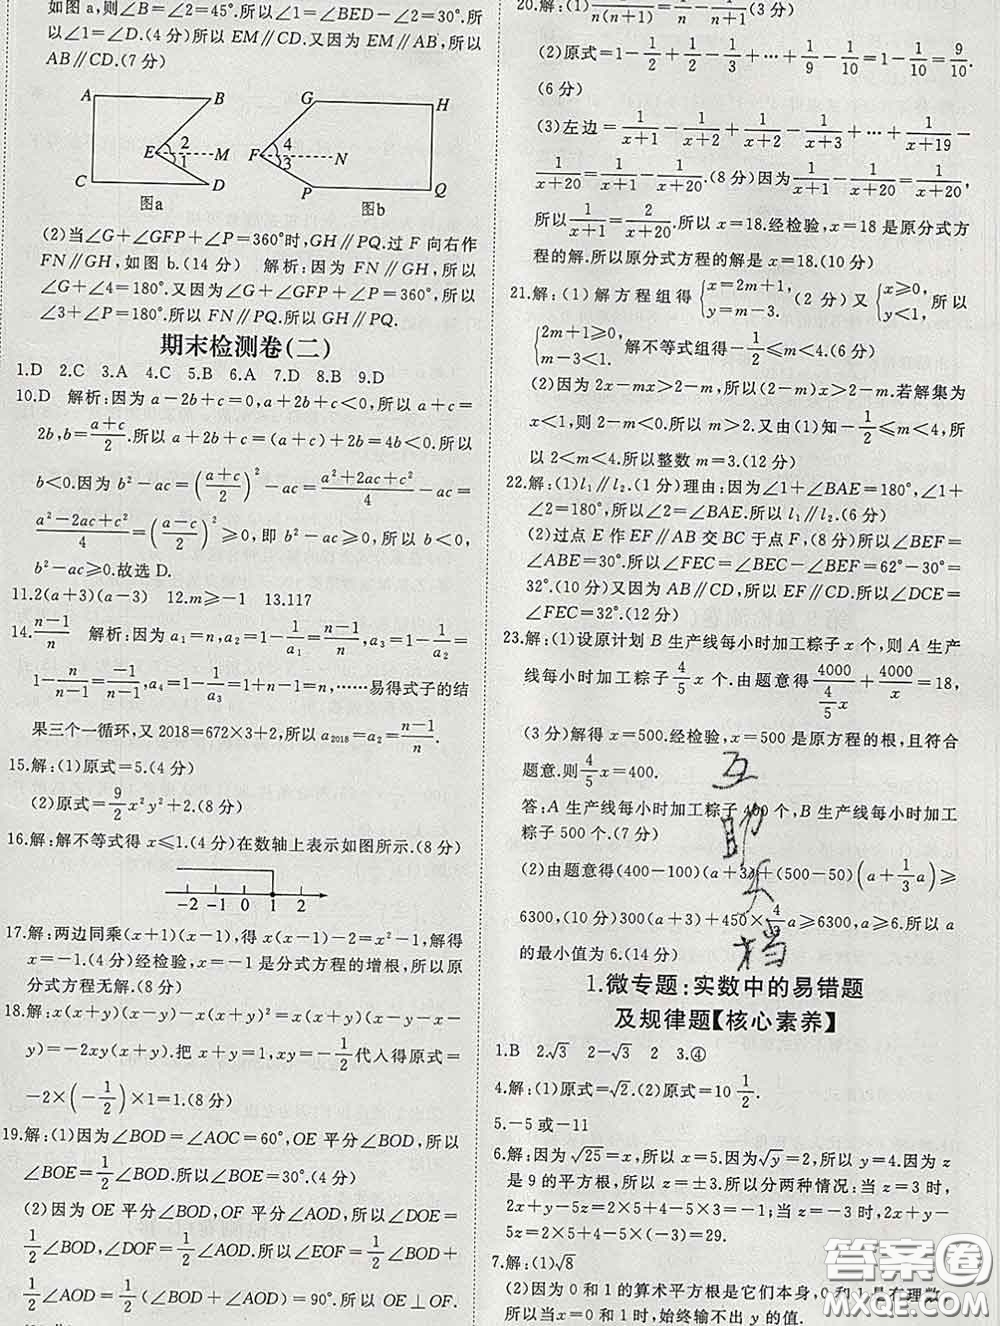 如图 a,则∠2=45°.所以∠1=∠BED-∠2=30°.所
以∠1=∠D.(4 分)所以 EM∥CD.又因为 EM∥AB,所以
AB∥CD.(7 分)
A B G H
E 2 1 M F 4 3 N
C D P Q
图a 图b
(2)当∠G+∠GFP+∠P=360°时,GH∥PQ.过 F 向右作
FN∥GH,如图 b.(14 分) 解析:因为 FN∥GH,所以
∠G+∠4=180°.又因为∠G+∠GFP+∠P=360°,所以
∠3+∠P=180°.所以 FN∥PQ.所以 GH∥PQ.
期末检测卷(二)
1.D 2.C 3.A 4.C 5.B 6.A 7.D 8.B 9.D
10.D 解析:因为 a-2b+c=0,a+2b+c<0,所以 a+c=
2b,b=(a+c)/2.所以 a+2b+c=(a+c)+2b=4b<0.所以
b<0.因为 b²-ac=((a+c)/2)²-ac=(a²+2ac+c²)/4-ac=
(a²-2ac+c²)/4=((a-c)/2)²≥0,即 b²-ac≥0,所以 b<0,
b²-ac≥0.故选 D.
11.2(a+3)(a-3) 12.m≥-1 13.117
14.(n-1)/n 解析:因为 a₁=n,a₂=1-1/a₁=(n-1)/n,a₃=1-1/a₂=
1-n/(n-1)=-1/(n-1),a₄=1-1/a₃=1+n-1=n,……易得式子的结
果三个一循环,又 2018=672×3+2,所以 a₂₀₁₈=a₂=(n-1)/n.
15.解:(1)原式=5.(4 分)
(2)原式=9/2x²y²+2.(8 分)
16.解:解不等式得 x≤1.(4 分)在数轴上表示如图所示.(8 分)
-2 -1 0 1 2
17.解:两边同乘(x+1)(x-1),得 x(x-1)-2=x²-1,解得
x=-1.(4 分)经检验,x=-1 是分式方程的增根,所以原
分式方程无解.(8 分)
18.解:x(x+y)(x-y)-x(x+y)²=x(x+y)(x-y-x-
y)=-2xy(x+y).把 x+y=1,xy=-1/2代入得原式=
-2×(-1/2)×1=1.(8 分)
19.解:(1)因为∠BOD=∠AOC=60°,OE 平分∠BOD,所以
∠BOE=1/2∠BOD.所以∠BOE=30°.(4 分)
(2)因为 OE 平分∠BOD,OF 平分∠AOD,所以∠DOE=
1/2∠BOD,∠DOF=1/2∠AOD.所以∠EOF=1/2∠BOD+
1/2∠AOD=1/2(∠BOD+∠AOD)=90°.所以 OE⊥OF.
20.解:(1)1/(n(n+1))=1/n-1/(n+1)(3 分)
(2)原式=1-1/2+1/2-1/3+…+1/9-1/10=1-1/10=9/10.
(6 分)
(3)左边=1/(x+1)-1/(x+2)+1/(x+2)-1/(x+3)+…+1/(x+19)-
1/(x+20)=1/(x+1)-1/(x+20).(8 分)因为1/(x+1)-1/(x+20)=1/(x+20),
所以1/(x+1)=2/(x+20).所以 x=18.经检验,x=18 是原分式方
程的解.所以原分式方程的解是 x=18.(10 分)
21.解:(1)解方程组得{x=2m+1,y=m-3.(2 分)又{x≥0,y<1,所以
{2m+1≥0,m-3<1.解不等式组得-1/2≤m<4.(6 分)
(2)因为 2x-mx>2-m,所以(2-m)x>2-m.若解集为
x<1,则 2-m<0,所以 m>2.又由(1)知-1/2≤m<4,所
以 2<m<4.所以整数 m=3.(12 分)
22.解:(1)l₁∥l₂.(1 分)理由:因为∠1+∠BAE=180°,∠1+
∠2=180°,所以∠2=∠BAE.所以 l₁∥l₂.(6 分)
(2)过点 E 作 EF∥AB 交 BC 于点 F,(8 分)所以∠BEF=
∠ABE=30°.所以∠FEC=∠BEC-∠BEF=62°-30°=
32°.(10 分)又因为 AB∥CD,所以 EF∥CD.所以∠DCE=
∠FEC=32°.(12 分)
23.解:(1)设原计划 B 生产线每小时加工粽子 x 个,则 A 生产
线每小时加工粽子4/5x 个.由题意得4000/(4/5x)+4000/x=18,
(3 分)解得 x=500.经检验,x=500 是原方程的根,且符合
题意.则4/5x=400.
答:A 生产线每小时加工粽子 400 个,B 生产线每小时加工
粽子 500 个.(7 分)
(2)由题意得(400-100)(a+3)+(500-50)(a+1/3a)≥
6300,(10 分)300(a+3)+450×4/3a≥6300,a≥6.所以 a
的最小值为 6.(14 分)
1.微专题:实数中的易错题
及规律题【核心素养】
1.B 2.√3 2-√3 2 3.④
4.解:(1)原式=√2.(2)原式=10 1/2.
5.-5 或-11
6.解:因为√25=x,所以 x=5.因为√y=2,所以 y=4.因为 z
是 9 的平方根,所以 z=±3.所以分两种情况:当 z=3 时,
2x+y-5z=2×5+4-5×3=-1;当 z=-3 时,2x+y
-5z=2×5+4-5×(-3)=29.
7.解:(1)√8
(2)因为 0 和 1 的算术平方根是它们本身,0 和 1 是有理数,
所以当 x=0 和 1 时,始终输不出 y 的值.
答案卷
MXQE.COM